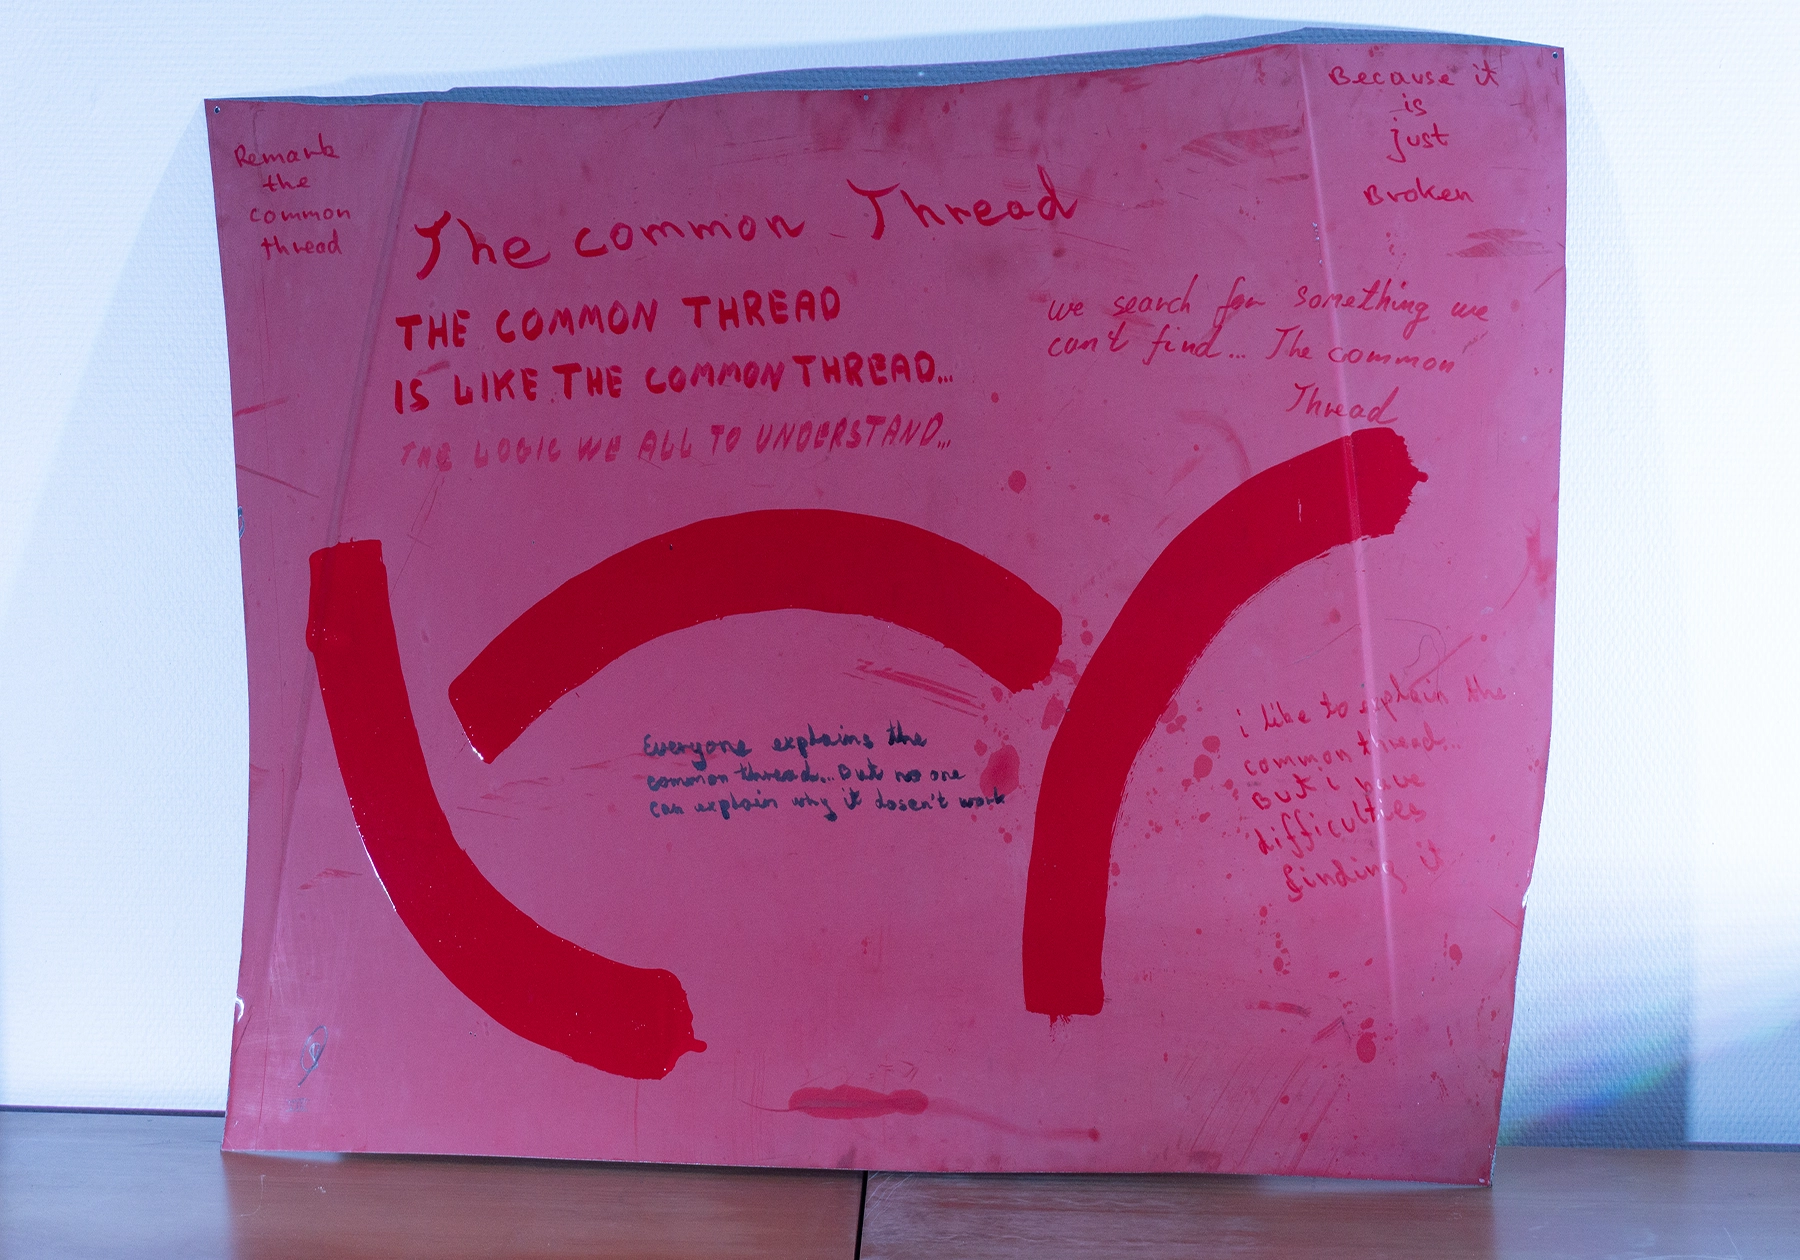 Remark
the
common
thread
Because it
is
just
Broken
The common Thread
THE COMMON THREAD
IS LIKE THE COMMON THREAD...
THE LOGIC WE ALL TO UNDERSTAND...
we search for something we
can't find... The common
Thread
Everyone explains the
common thread... But no one
can explain why it dosen't work
i like to explain the
common thread...
But i have
difficulties
finding it